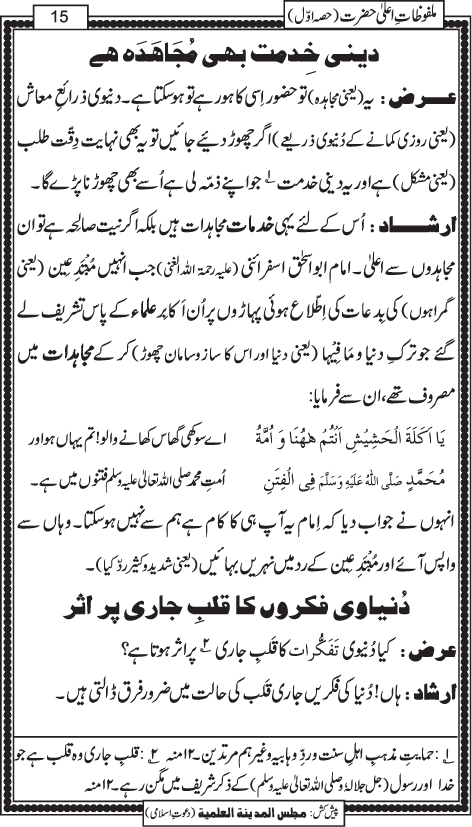 ملفوظاتِ اعلیٰ حضرت (حصہ اوّل)
15
دینی خِدمت بھی مُجاھَدَہ ھے
عرض: یہ (یعنی مجاہدہ) تو حضور اِسی کا ہو رہے تو ہوسکتا ہے۔ دنیوی ذرائعِ معاش
(یعنی روزی کمانے کے دُنیوی ذریعے) اگر چھوڑ دیئے جائیں تو یہ بھی نہایت دِقّت طلب
(یعنی مشکل) ہے اور یہ دینی خدمت ۱؎ جو اپنے ذمّہ لی ہے اُسے بھی چھوڑنا پڑے گا۔
ارشاد: اُس کے لئے یہی خدمات مجاہدات ہیں بلکہ اگر نیت صالحہ ہے تو ان
مجاہدوں سے اعلیٰ۔ امام ابو اسحٰق اسفرائنی (علیہ رحمۃ اللہ الغنی) جب انہیں مُبْتَدِعین (یعنی
گمراہوں) کی بدعات کی اِطِّلاع ہوئی پہاڑوں پر اُن اکابر علماء کے پاس تشریف لے
گئے جو ترکِ دنیا و مَا فِیہا (یعنی دنیا اور اس کا ساز و سامان چھوڑ) کر کے مجاہدات میں
مصروف تھے، ان سے فرمایا:
یَا اَکَلَۃَ الْحَشِیْشِ اَنْتُمْ ھٰھُنَا وَ اُمَّۃُ
اے سوکھی گھاس کھانے والو! تم یہاں ہو اور
مُحَمَّدٍ صَلَّی اللّٰہُ عَلَیْہِ وَسَلَّمَ فِی الْفِتَنِ
اُمتِ محمد صلی اللہ تعالیٰ علیہ وسلم فتنوں میں ہے۔
انہوں نے جواب دیا کہ اِمام یہ آپ ہی کا کام ہے ہم سے نہیں ہوسکتا۔ وہاں سے
واپس آئے اور مُبْتَدِعین کے رد میں نہریں بہائیں (یعنی شدید و کثیر ردّ کیا)۔
دُنیاوی فکروں کا قلبِ جاری پر اثر
عرض: کیا دُنیوی تَفَکُّرات کا قلبِ جاری ۲؎ پر اثر ہوتا ہے؟
ارشاد: ہاں! دُنیا کی فکریں جاری قلب کی حالت میں ضرور فرق ڈالتی ہیں۔
۱؎ : حمایتِ مذہبِ اہلِ سنت و ردِّ وہابیہ و غیرہم مرتدین۔ ۱۲ منہ ۲؎ : قلبِ جاری وہ قلب ہے جو
خدا اور رسول (جل جلالہٗ و صلی اللہ تعالیٰ علیہ وسلم) کے ذکر شریف میں مگن رہے۔ ۱۲ منہ
پیش کش: مجلس المدینۃ العلمیۃ (دعوتِ اسلامی)